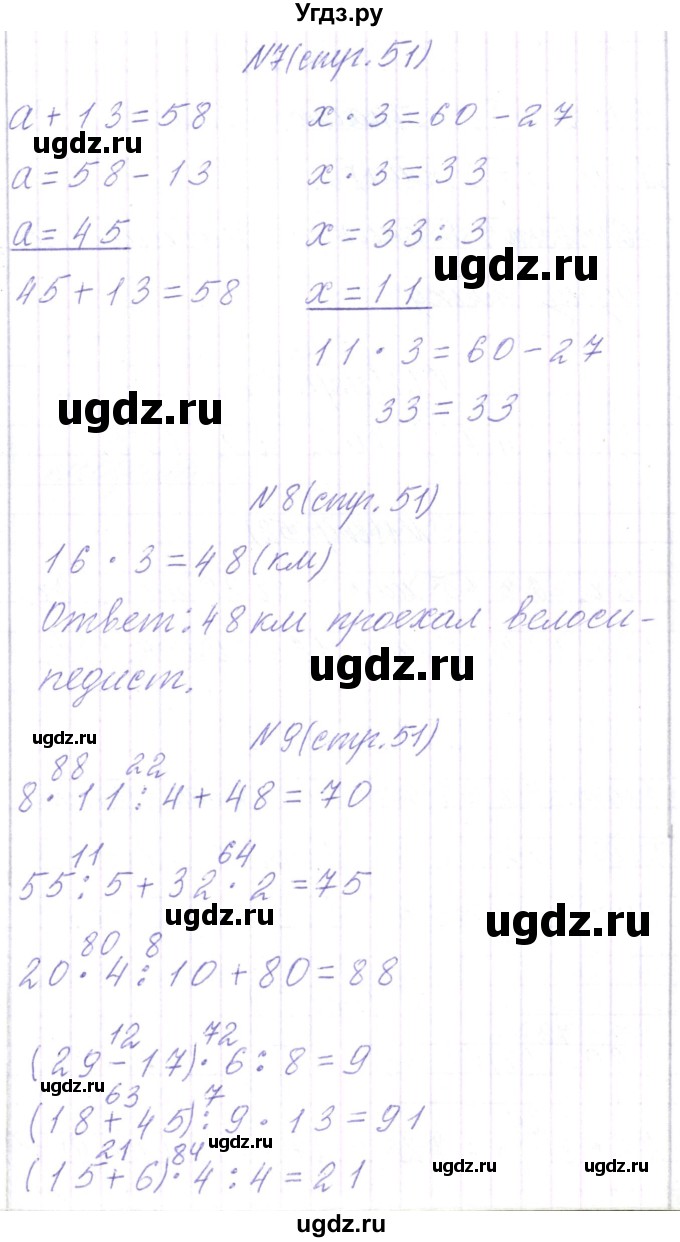 Угдз.ру
N7(стр. 51)
a + 13 = 58
a = 58 - 13
a = 45
45 + 13 = 58
x · 3 = 60 - 27
x · 3 = 33
x = 33 : 3
x = 11
11 · 3 = 60 - 27
33 = 33
ugdz.ru
ugdz.ru
ugdz.ru
N8(стр. 51)
16 · 3 = 48 (км)
Ответ: 48 км проехал велоси-
педист.
ugdz.ru
ugdz.ru
N9(стр. 51)
88 22
8 · 11 : 4 + 48 = 70
11 64
55 : 5 + 32 · 2 = 75
ugdz.ru
ugdz.ru
80 8
20 · 4 : 10 + 80 = 88
12 72
(29 - 17) · 6 : 8 = 9
ugdz.ru
63 7
(18 + 45) : 9 · 13 = 91
ugdz.ru
21 84
(15 + 6) · 4 : 4 = 21
ugdz.ru
ugdz.ru
ugdz.ru